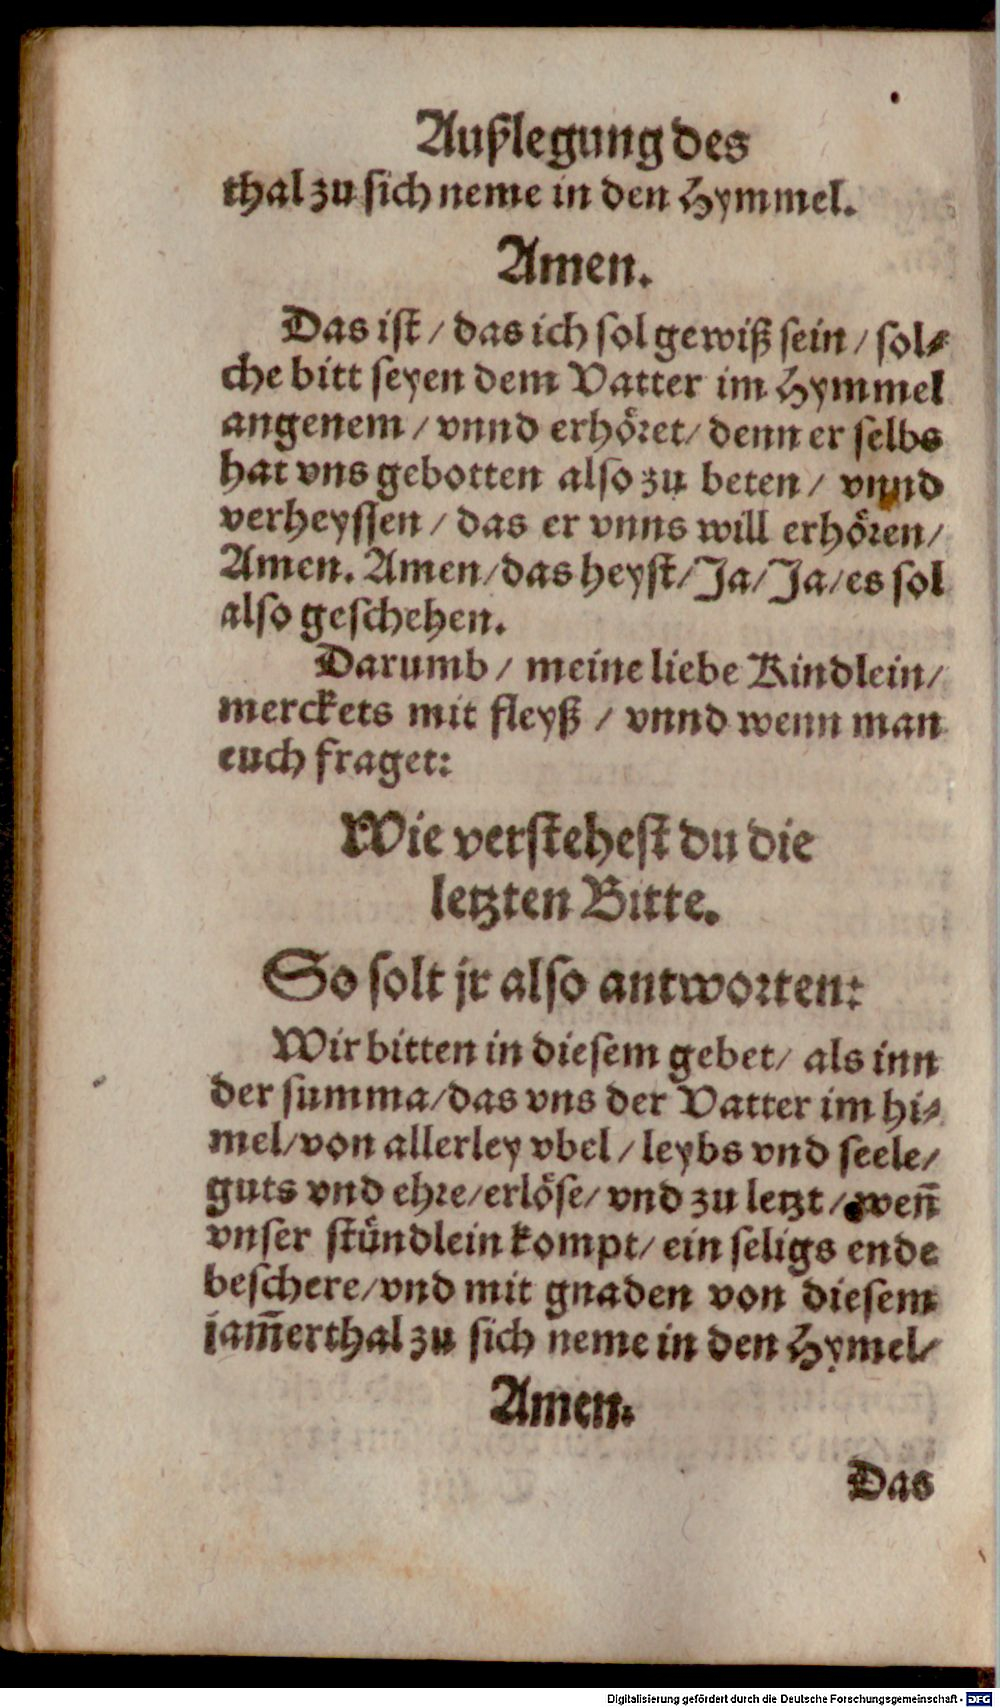 Außlegung des
thal zu sich neme in den Hymmel.
Amen.
Das ist / das ich sol gewiß sein / sol⸗
che bitt seyen dem Vatter im Hymmel
angenem / vnnd erhöret / denn er selbs
hat vns gebotten also zu beten / vnnd
verheyssen / das er vnns will erhören /
Amen. Amen / das heyst / Ja / Ja / es sol
also geschehen.
Darumb / meine liebe Kindlein /
merckets mit fleyß / vnnd wenn man
euch fraget:
Wie verstehest du die
letzten Bitte.
So solt jr also antworten:
Wir bitten in diesem gebet / als inn
der summa / das vns der Vatter im hi⸗
mel / von allerley vbel / leybs vnd seele /
guts vnd ehre / erlöse / vnd zu letzt / weñ
vnser stündlein kompt / ein seligs ende
beschere / vnd mit gnaden von diesem
jam̃erthal zu sich neme in den Hymel /
Amen.
Das
Digitalisierung gefördert durch die Deutsche Forschungsgemeinschaft - DFG